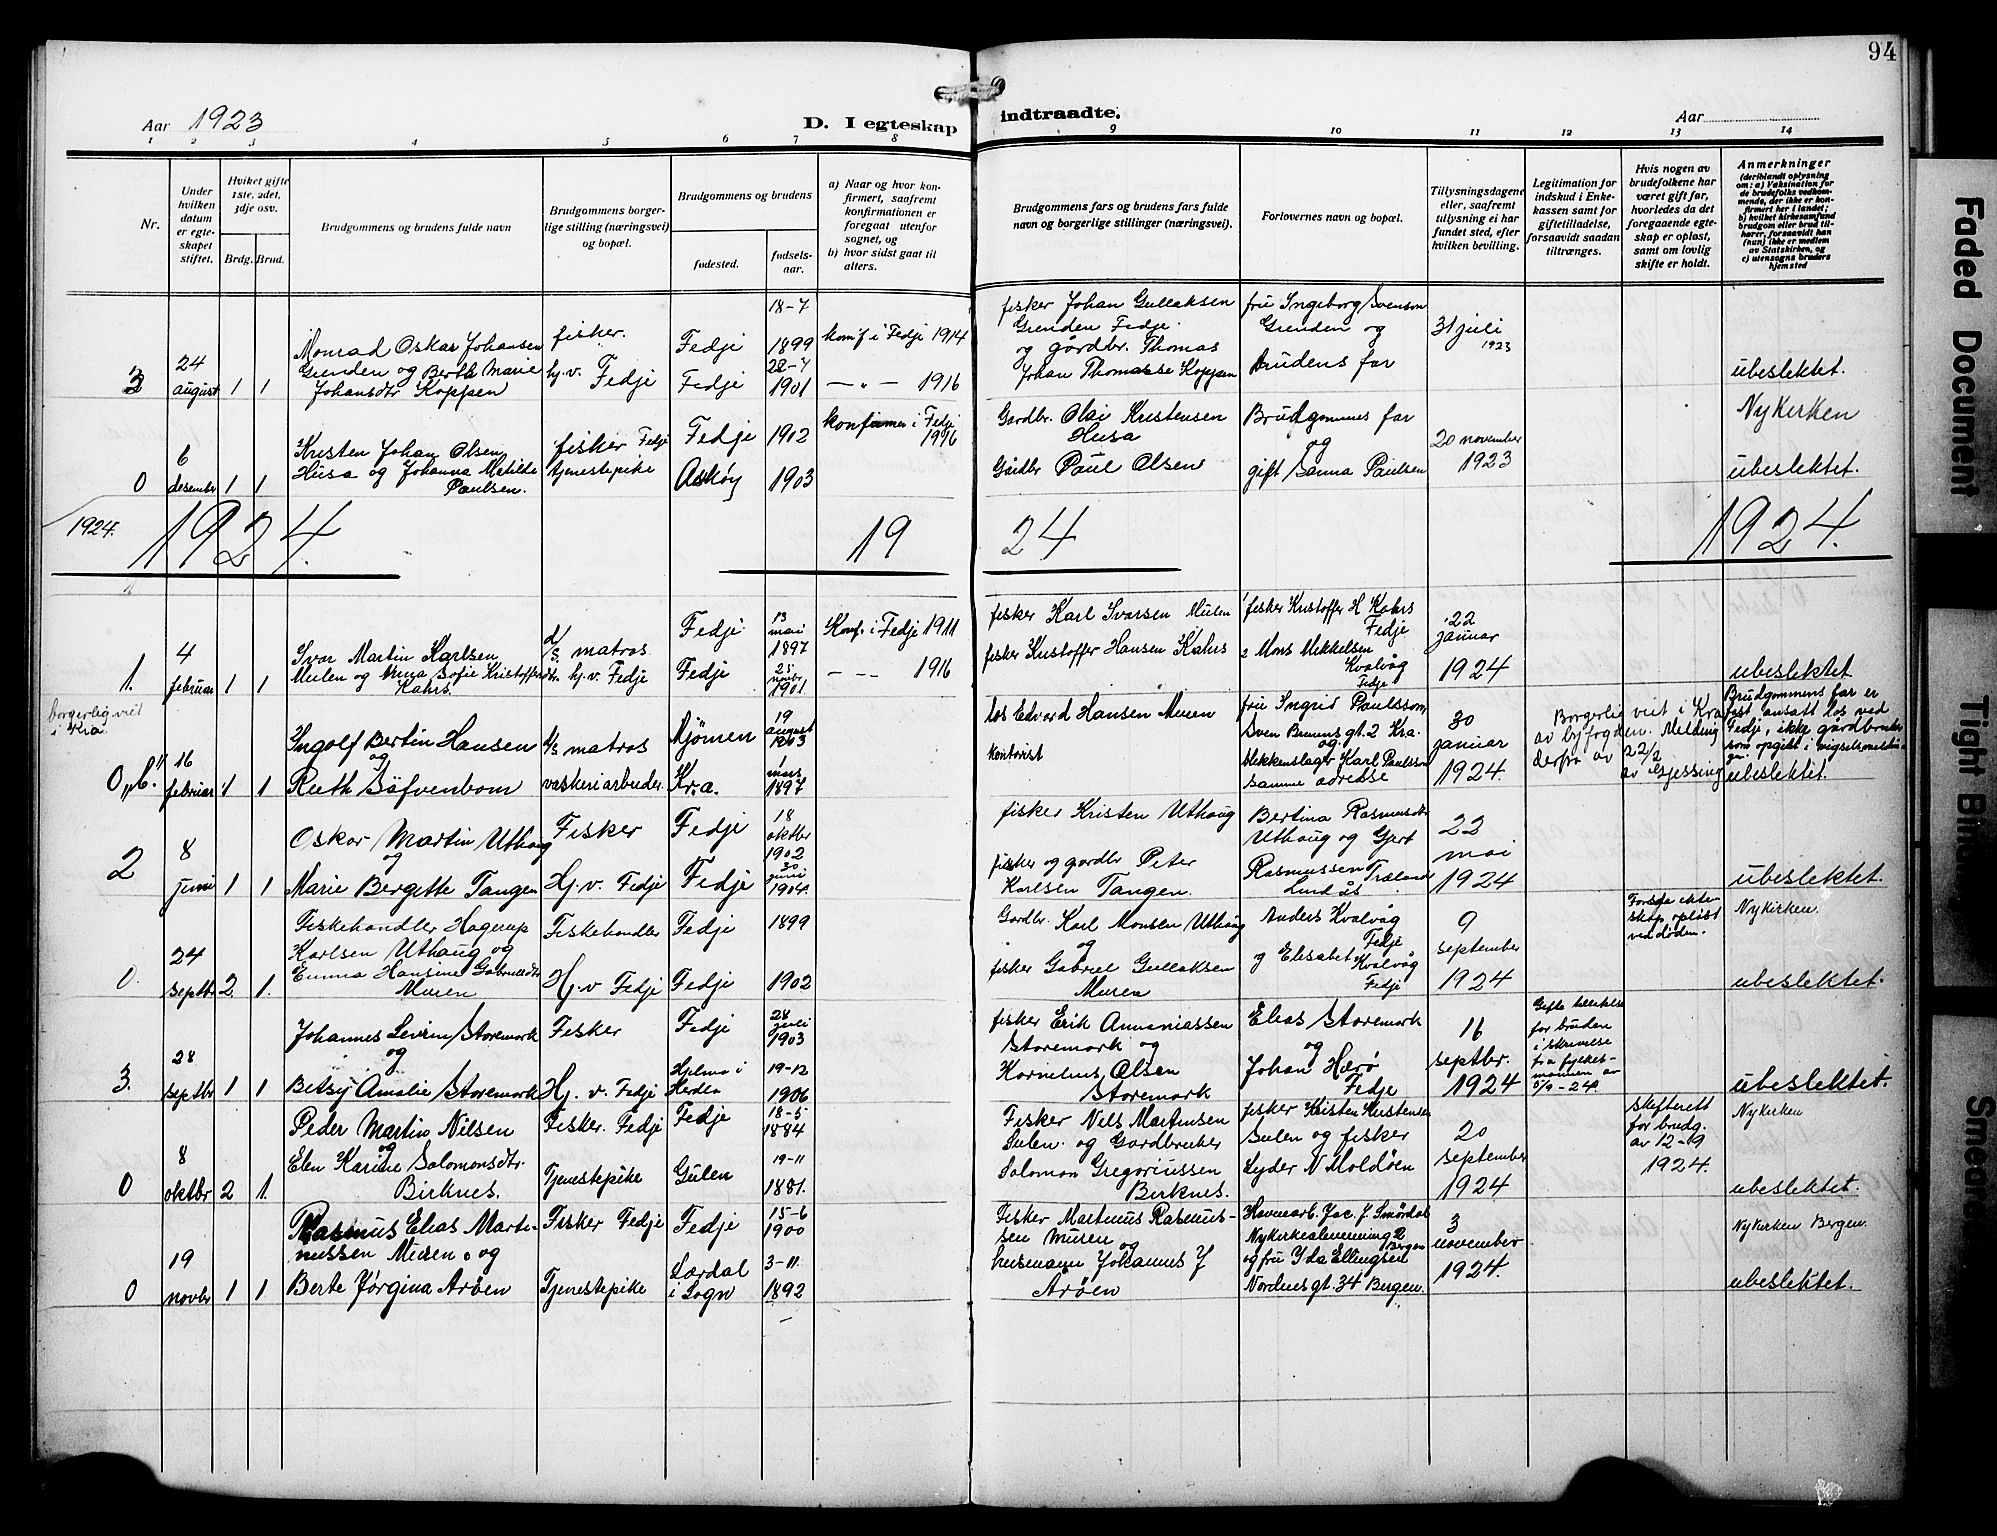 94
Aar 1923
D. I egteskap indtraadte.
Aar
1 2 3 4 5 6 7 8 9 10 11 12 13 14
Nr.
Under hvilken datum er egteskapet stiftet.
Hviket gifte 1ste, 2det, 3dje osv.
Brdg. Brud.
Brudgommens og brudens fulde navn
Brudgommens borgerlige stilling (næringsvei) og bopæl.
Brudgommens og brudens
fødested.
fødselsaar.
a) Naar og hvor konfirmert, saafremt konfirmationen er foregaat utenfor sognet, og
b) hvor sidst gaat til alters.
Brudgommens fars og brudens fars fulde navn og borgerlige stillinger (næringsvei).
Forlovernes navn og bopæl.
Tillysningsdagene eller, saafremt tillysning ei har fundet sted, efter hvilken bevilling.
Legitimation for indskud i Enkekassen samt for giftetilladelse, forsaavidt saadan tiltrænges.
Hvis nogen av brudefolkene har været gift før, hvorledes da det foregaaende egteskap er opløst, samt om lovlig skifte er holdt.
Anmerkninger
(deriblandt oplysning om: a) Vaksination for de brudefolks vedkommende, der ikke er konfirmert her i landet; b) hvilket kirkesamfund brudgom eller brud tilhører, forsaavidt han (hun) ikke er medlem av Statskirken, og c) utensogns bruders hjemsted
3
24 august
1 1
Monrad Oskar Johansen
Grenden og Berth Marie
Johansdtr Koppen
fisker.
hj.v. Fedje
Fedje
Fedje
18-7
1899
22-7
1901
konf i Fedje 1914
— " — 1916
fisker Johan Gullaksen
Grenden Fedje.
og gårdbr. Thomas
Johan Thomasse Koppen
fru Ingeborg Svenson
Grenden og
Brudens far
31 juli
1923
ubeslektet.
0
6 desember
1 1
Kristen Johan Olsen
Husa og Johanna Matilde
Paulsen.
fisker Fedje
tjenestepike
Fedje
Askøy
1902
1903
konfirmer i Fedje
1916
Gardbr. Olai Kristensen
Husa
Gårdbr Paul Olsen
Brudgommes far
og
gift Sanna Paulsen
20 november
1923
Nykirken
ubeslektet.
1924.
1924.
19 24
1924.
1.
4 februar
1 1
Ivar Martin Karlsen
Mulen og Anna Sofie Kristoffersdtr
Kahrs.
d/s. matros
hj.v. Fedje
Fedje
Fedje
13 mai
1897
25 novbr
1901
Konf. i Fedje 1911
— — 1916
fisker Karl Ivarsen Mulen
fisker Kristoffer Hansen Kahrs
1 fisker Kristoffer H Kahrs
Fedje
2 Mons Mikkelsen
Kvalvåg
Fedje
22 januar
1924
ubeslektet
borgerlig viet
i Kra.
0 „b."
16 februar
1 1
Ingolf Bertin Hansen
og
Ruth Söfvenbom
d/s matros
vaskeriarbeider.
Mjömen
Kr.a.
19 august
1903
1 mars
1897
los Edvard Hansen Muren
kontorist
fru Ingrid Paulsson,
Sven Bruns gt. 2 Kra.
og
blekkenslager Karl Paulsson
samme adresse
30 januar
1924.
Borgerlig viet i Kra
av byfogden. Melding
derfra av 22/2
av Gjessing
Brudgommens far er
fast ansatt los ved
Fedje, ikke gårdbruker
som opgitt i vigselsmeldingen.
ubeslektet.
2
8 juni
1 1
Oskar Martin Uthaug
og
Marie Bergitte Tangen
Fisker
Hj.v. Fedje
Fedje
Fedje
18 oktbr
1902
30 juni
1904.
fisker Kristen Uthaug
fisker og gardbr Peter
Karlsen Tangen.
Bertina Rasmusdtr
Uthaug og Gjert
Rasmussen Træland
Lindås
22 mai
1924
ubeslektet.
0.
24 septbr
2. 1.
Fiskehandler Hagerup
Karlsen Uthaug og
Emma Hansine Gabrielsdtr
Muren
Fiskehandler
Hj.v Fedje
Fedje
Fedje
1899
1902
Gardbr. Karl Monsen Uthaug
og
fisker Gabriel Gullaksen
Muren
Anders Kvalvåg
Fedje
og Elisabet Kvalvåg
Fedje
9 september
1924
Første ekteskap opløst
ved døden.
Nykirken.
ubeslektet.
3.
28 septbr
1 1
Johannes Severin Storemark
og
Betsy Amalie Storemark
Fisker
Hj. v. Fedje
Fedje
Hjelma i
Herdla
28 juli
1903
19-12
1906
fisker Erik Annaniassen
Storemark og
Kornelius Olsen
Storemark
Elias Storemark
og
Johan Herø
Fedje
16 septbr.
1924
for bruden
i skrivelse
fra fylkesmannen av
5/9-24
ubeslektet.
0
8 oktbr
2 1.
Peder Martin Nilsen
og
Elen Karine Salomonsdtr.
Birknes.
Fisker. Fedje
Tjenestepike
Fedje
Gulen
18-5
1884
19-11
1881.
Fisker Nils Martinsen
Sulen. og Gardbruker
Salomon Gregoriussen
Birknes.
fisker Kristen Kristensen
Sulen og fisker
Lyder N Moldöen
20 september
1924
skifterett
for brudg.
av 12-9
1924.
Nykirken
ubeslektet.
0
19 novbr
1 1
Rasmus Elias Martinussen Muren. og
Berte Jørgina Aröen
Fisker Fedje
Tjenestepike
Fedje
Lærdal
i Sogn
15-6
1900
3-11.
1892
Fisker Martinus Rasmussen Muren
og
husmann Johannes J
Arøen
Havnearb. Jac. J. Smørdal
Nykirkealmenning 2
Bergen
og fru Ida Ellingsen
Nordnesgt. 34 Bergen.
3 november
1924.
Nykirken Bergen.
ubeslektet.
Faded Document
Tight Bin
Smeare